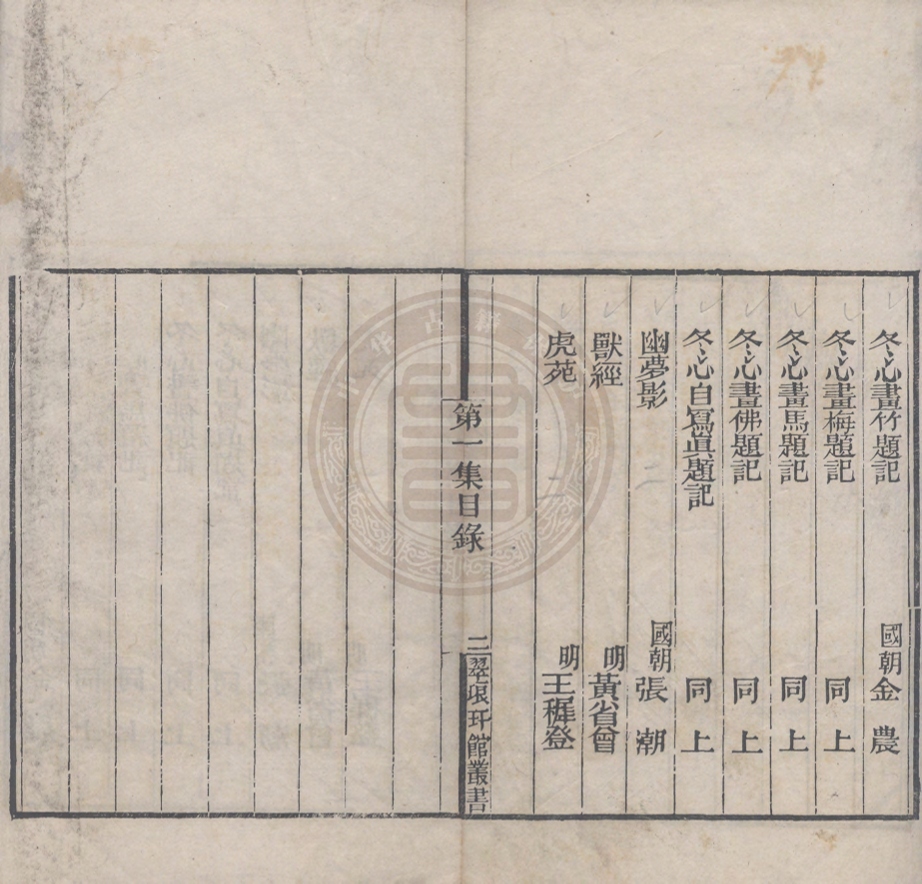 冬心畫竹題記 國朝金農
冬心畫梅題記 同上
冬心畫馬題記 同上
冬心畫佛題記 同上
冬心自寫眞題記 同上
幽夢影 國朝張潮
獸經 明黃省曾
虎苑 明王穉登
第一集目錄 二 翠琅玕館叢書